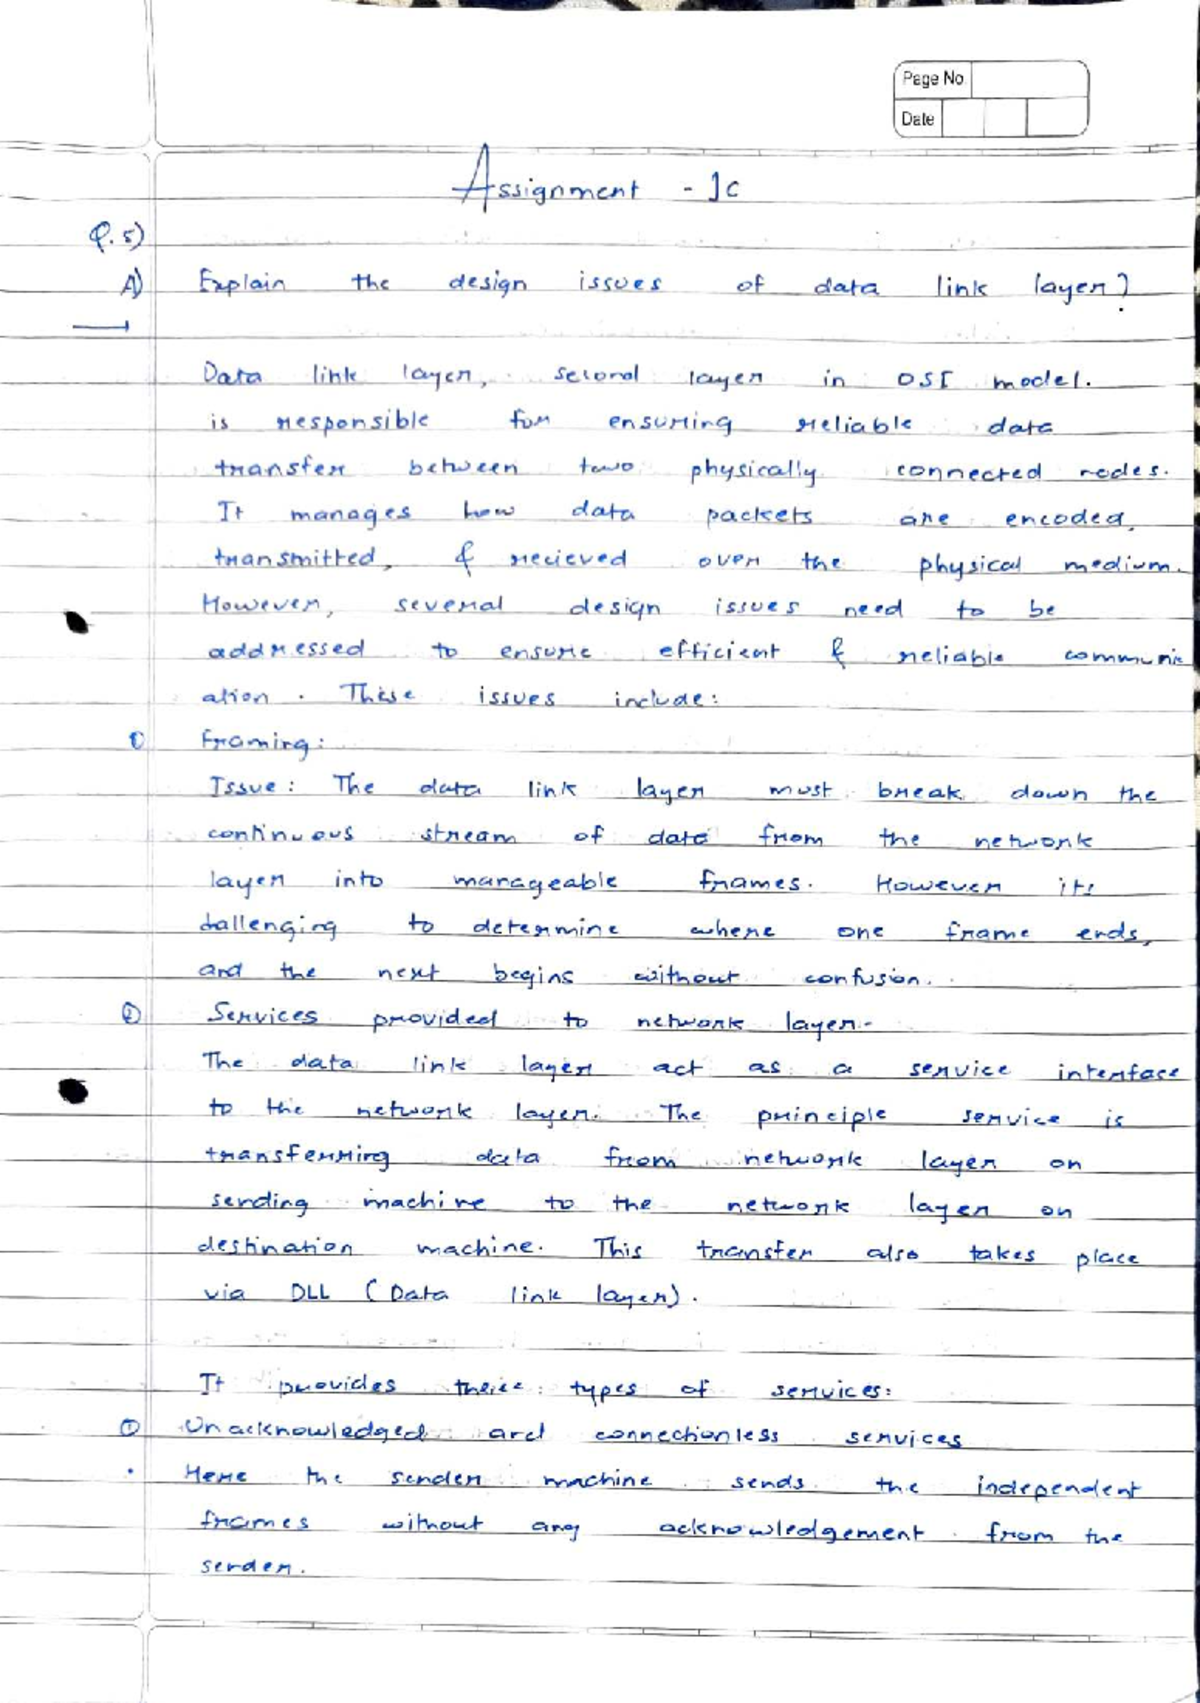 Page No
Date
Assignment - 1c
Q.5)
A) Explain the design issues of data link layer?
Data link layer, second layer in OSI model.
is responsible for ensuring reliable data
transfer between two physically connected nodes.
It manages how data packets are encoded,
transmitted, & recieved over the physical medium.
However, several design issues need to be
addressed to ensure efficient & reliable communic
ation. These issues include:
① Framing:
Issue: The data link layer must break down the
continuous stream of data from the network
layer into manageable frames. However its
challenging to determine where one frame ends,
and the next begins without confusion.
② Services provided to network layer-
The data link layer act as a service interface
to the network layer. The principle service is
transferring data from network layer on
sending machine to the network layer on
destination machine. This transfer also takes place
via DLL (Data link layer).
It provides three types of services:
① Unacknowledged and connectionless services
• Here the sender machine sends the independent
frames without any acknowledgement from the
sender.